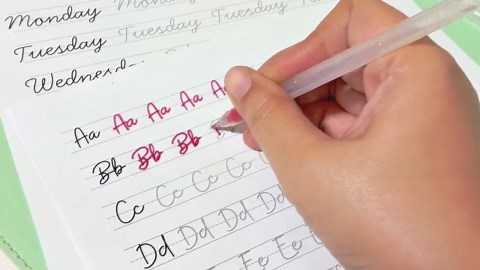 Monday Monday Monday
Tuesday Tuesday Tuesday Tuesday
Wednesd
Aa Aa Aa Aa Aa
Bb Bb Bb
Cc Cc Cc Cc Cc
Dd Dd Dd Dd Dd
Ee Ee Ee